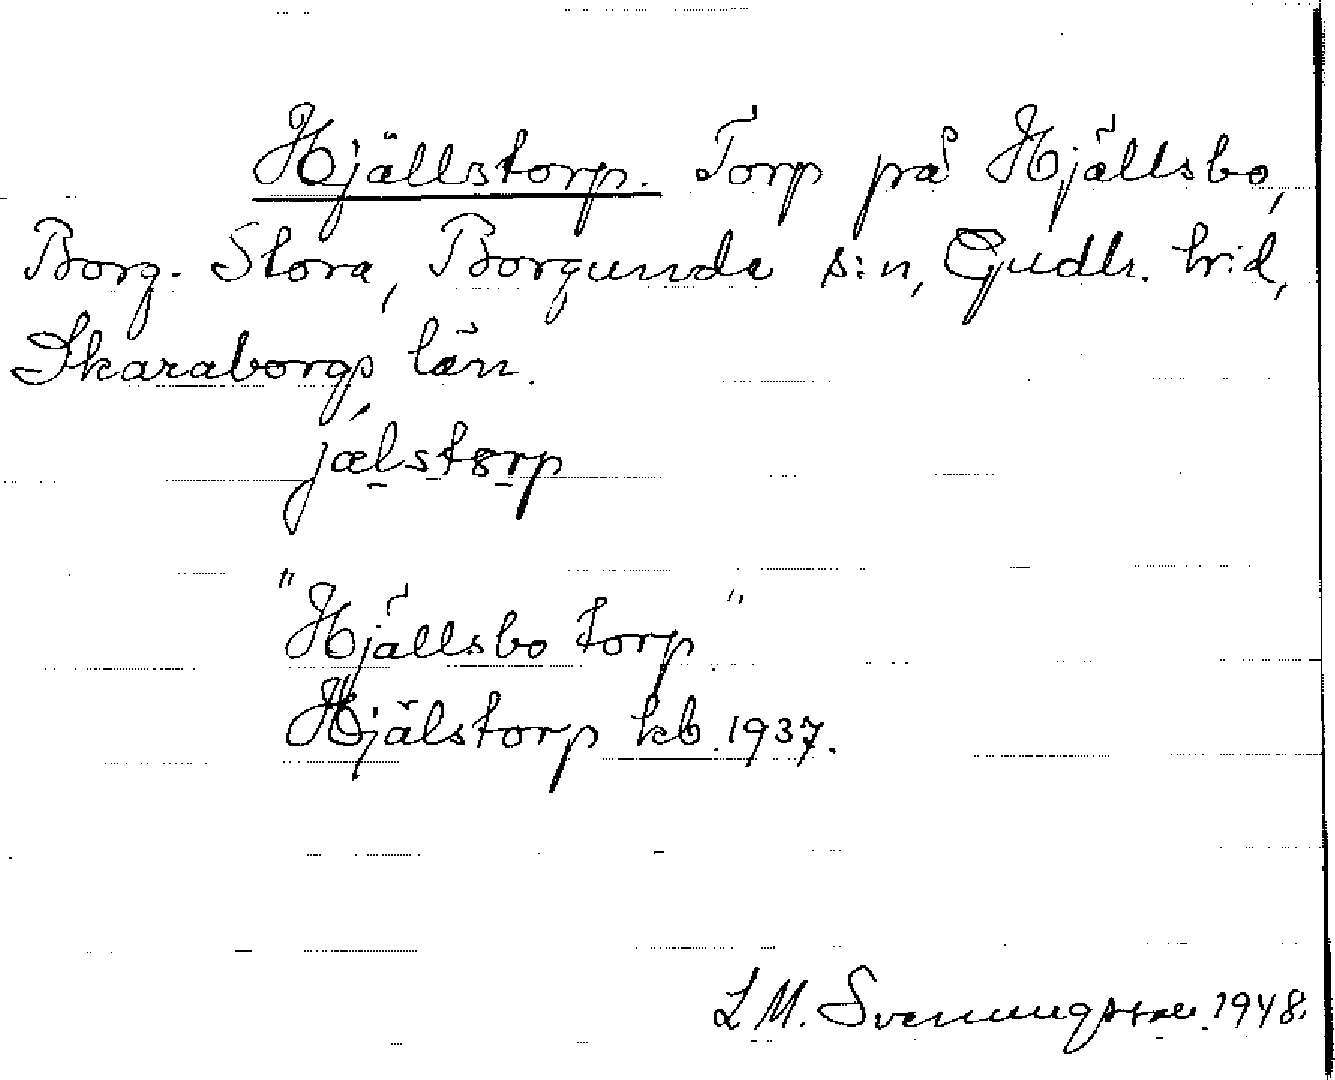 Hjällstorp. Torp på Hjällsbo,
Borg. Stora, Borgunda s:n, Gudh. hrd,
Skaraborgs län.
jælstorp
"Hjällsbo torp"
Hjälstorp kb. 1937.
L M. Svenungsson 1948.